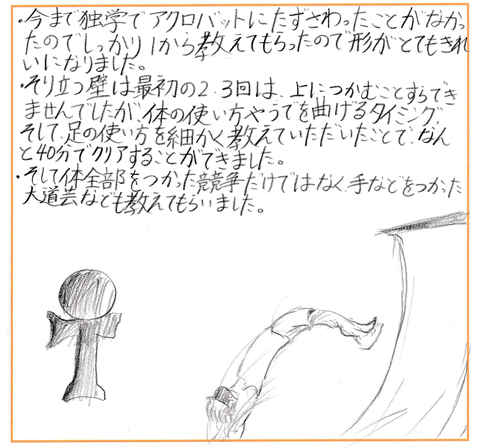 ・今まで独学でアクロバットにたずさわったことがなかっ
たのでしっかり1から教えてもらったので形がとてもきれ
いになりました。
・そり立つ壁は最初の2、3回は、上につかむことすらでき
ませんでしたが、体の使い方やうでを曲げるタイミング、
そして、足の使い方を細かく教えていただいたことで、なん
と40分でクリアすることができました。
・そして体全部をつかった競争だけではなく、手などをつかった
大道芸なども教えてもらいました。